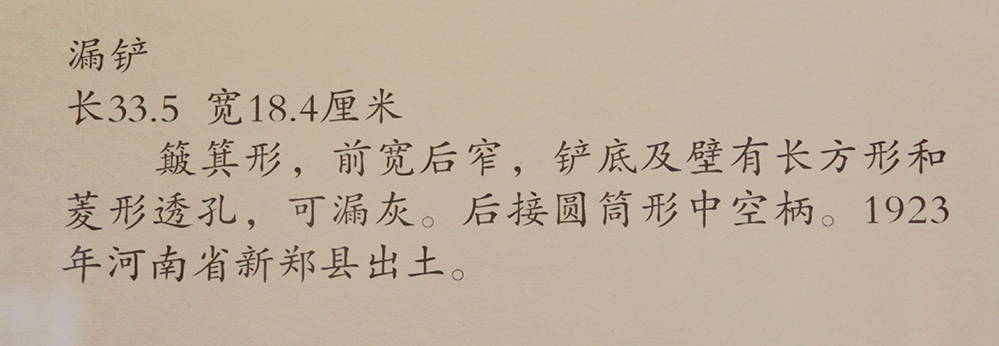 漏铲
长33.5 宽18.4厘米
簸箕形，前宽后窄，铲底及壁有长方形和
菱形透孔，可漏灰。后接圆筒形中空柄。1923
年河南省新郑县出土。